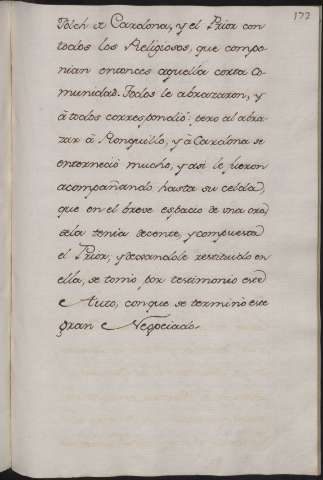 177
Folch de Cardona, y el Prior con
todos los Religiosos, que compo-
nian entonces aquella corta Co-
munidad. Todos le abrazaron, y
â todos correspondiò: pero al abra-
zar â Ronquillo, y â Cardona se
enterneciò mucho, y asi le fueron
acompañando hasta su celda,
que en el breve espacio de una ora,
sela tenia decente, y compuesta
el Prior, y dexandole restituido en
ella, se tomò por testimonio este
Auto, con que se terminò este
gran Negociado.